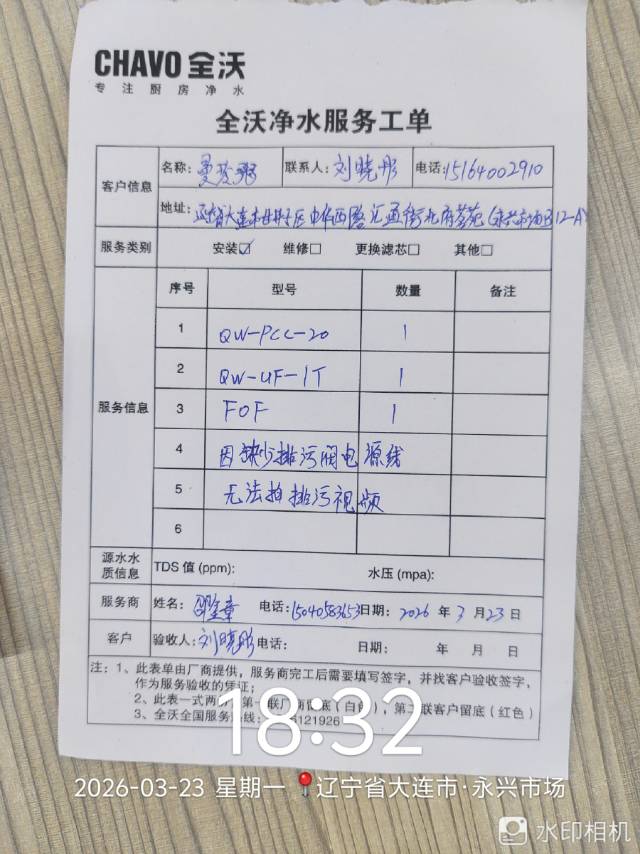 CHAVO 全沃
专注厨房净水
全沃净水服务工单
客户信息
名称: 曼玲粥 联系人: 刘晓彤 电话: 15164002910
地址: 辽宁省大连市甘井子区中华西路汇通街北府馨苑(永兴市场西12-A)
服务类别 安装☑ 维修□ 更换滤芯□ 其他□
服务信息
序号 型号 数量 备注
1 QW-PCC-20 1
2 QW-UF-1T 1
3 FOF 1
4 因缺少排污阀电源线
5 无法拍排污视频
6
源水水质信息 TDS 值 (ppm): 水压 (mpa):
服务商 姓名: 电话: 15040583653 日期: 2026 年 3 月 23 日
客户 验收人: 刘晓彤 电话: 日期: 年 月 日
注: 1、此表单由厂商提供，服务商完工后需要填写签字，并找客户验收签字，
作为服务验收的凭证;
2、此表一式两 第 联厂商留底(白色)，第二联客户留底(红色)
3、全沃全国服务 线: 6121926
18:32
2026-03-23 星期一 辽宁省大连市·永兴市场
水印相机